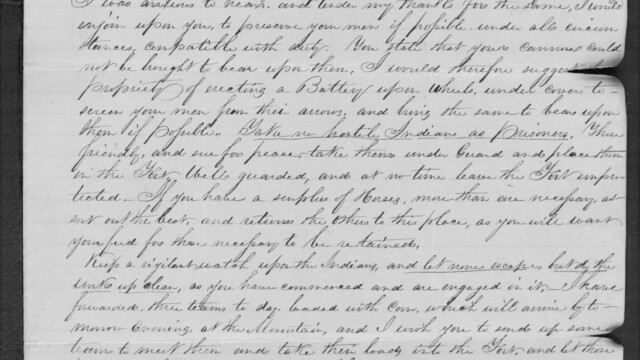 I was anxious to hear. and tender my thanks for the same, I would
enjoin upon you, to preserve your men if possible. under all circum
stances, compatible with duty. You state that your cannon could
not be brought to bear upon them. I would therefore suggest the
propriety of erecting a Battery upon Wheels, under cover to
screen your men from their arrows, and bring the same to bear upon
them if possible. Take no hostile Indians as Prisoners. Those
friendly, and sue for peace, take them under Guard and place them
in the Fort, Well guarded, and at no time leave the Fort unpro
tected. If you have a surplus of Horses, more than are necessary,
out the best, and return the others to this place, as you will want
your feed for those necessary to be retained.
Keep a vigilant watch upon the Indians, and let none escape, but do the
up clean, as you have commenced and are engaged in it; I have
forwarded, three teams to day, loaded with Corn, which will arrive by to-
morrow Evening, at the Mountain, and I wish you to send up some
team to meet them and take their loads into the Fort, and let those